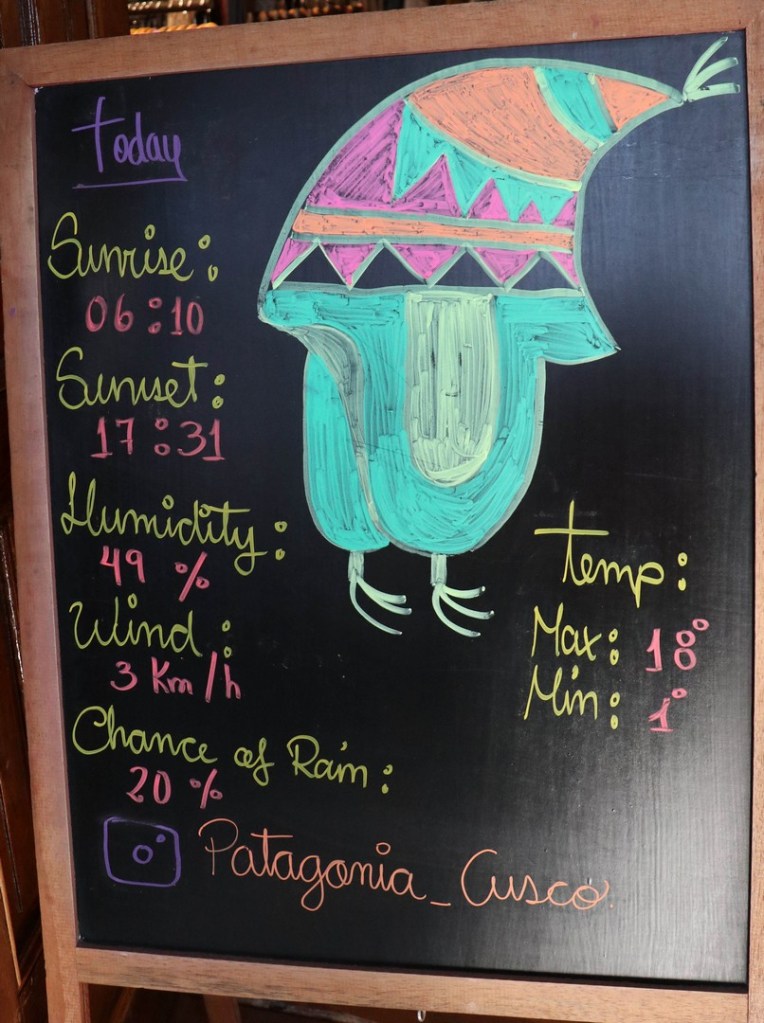 Today
Sunrise:
06:10
Sunset:
17:31
Humidity:
49 %
Wind:
3 Km/h
Chance of Rain:
20 %
Temp:
Max: 18°
Min: 1°
Patagonia_Cusco